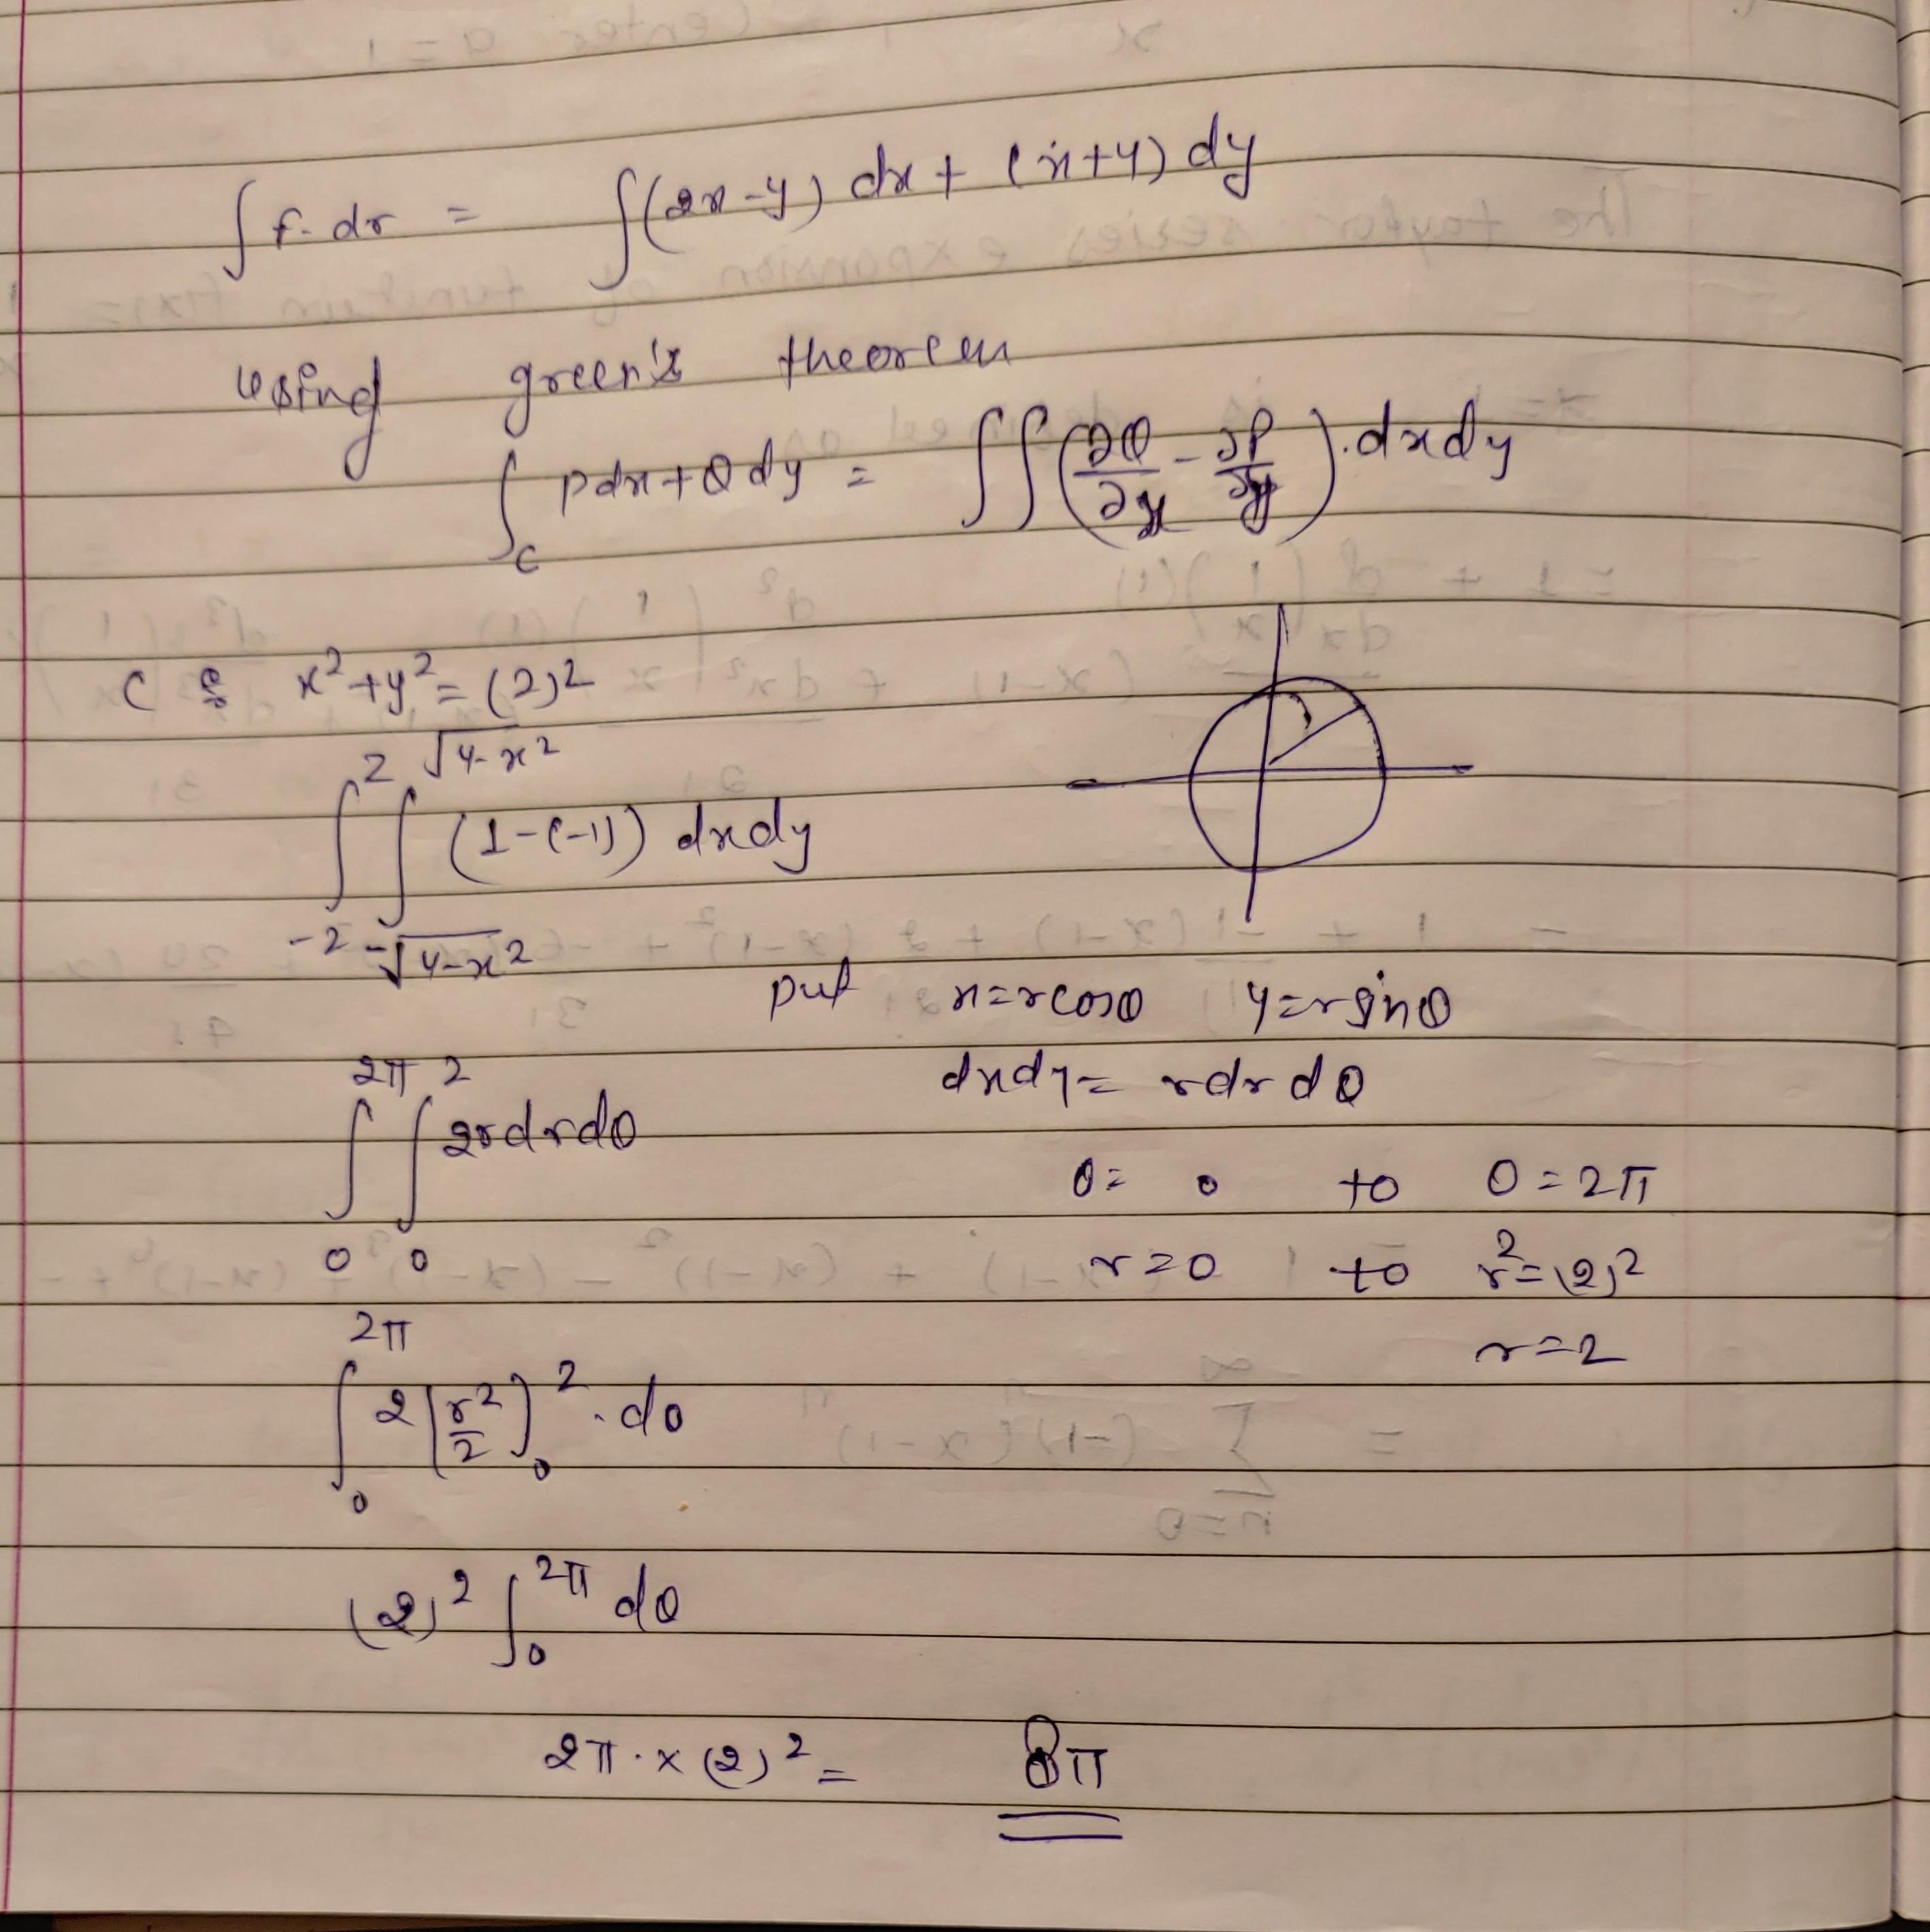 ∫ f. dr = ∫(2x-y) dx + (x+y) dy
using green's theorem
∫_C Pdx+Qdy = ∫∫(∂Q/∂x - ∂P/∂y).dxdy
C : x²+y² = (2)²
∫_{-2}^{2} ∫_{-√4-x²}^{√4-x²} (1-(-1)) dxdy
put x=rcosθ y=rsinθ
dxdy= rdrdθ
∫_0^{2π} ∫_0^2 2rdrdθ
θ= 0 to θ=2π
r=0 to r²=(2)²
r=2
∫_0^{2π} 2(r²/2)_0^2 . dθ
(2)² ∫_0^{2π} dθ
2π.x(2)² = 8π